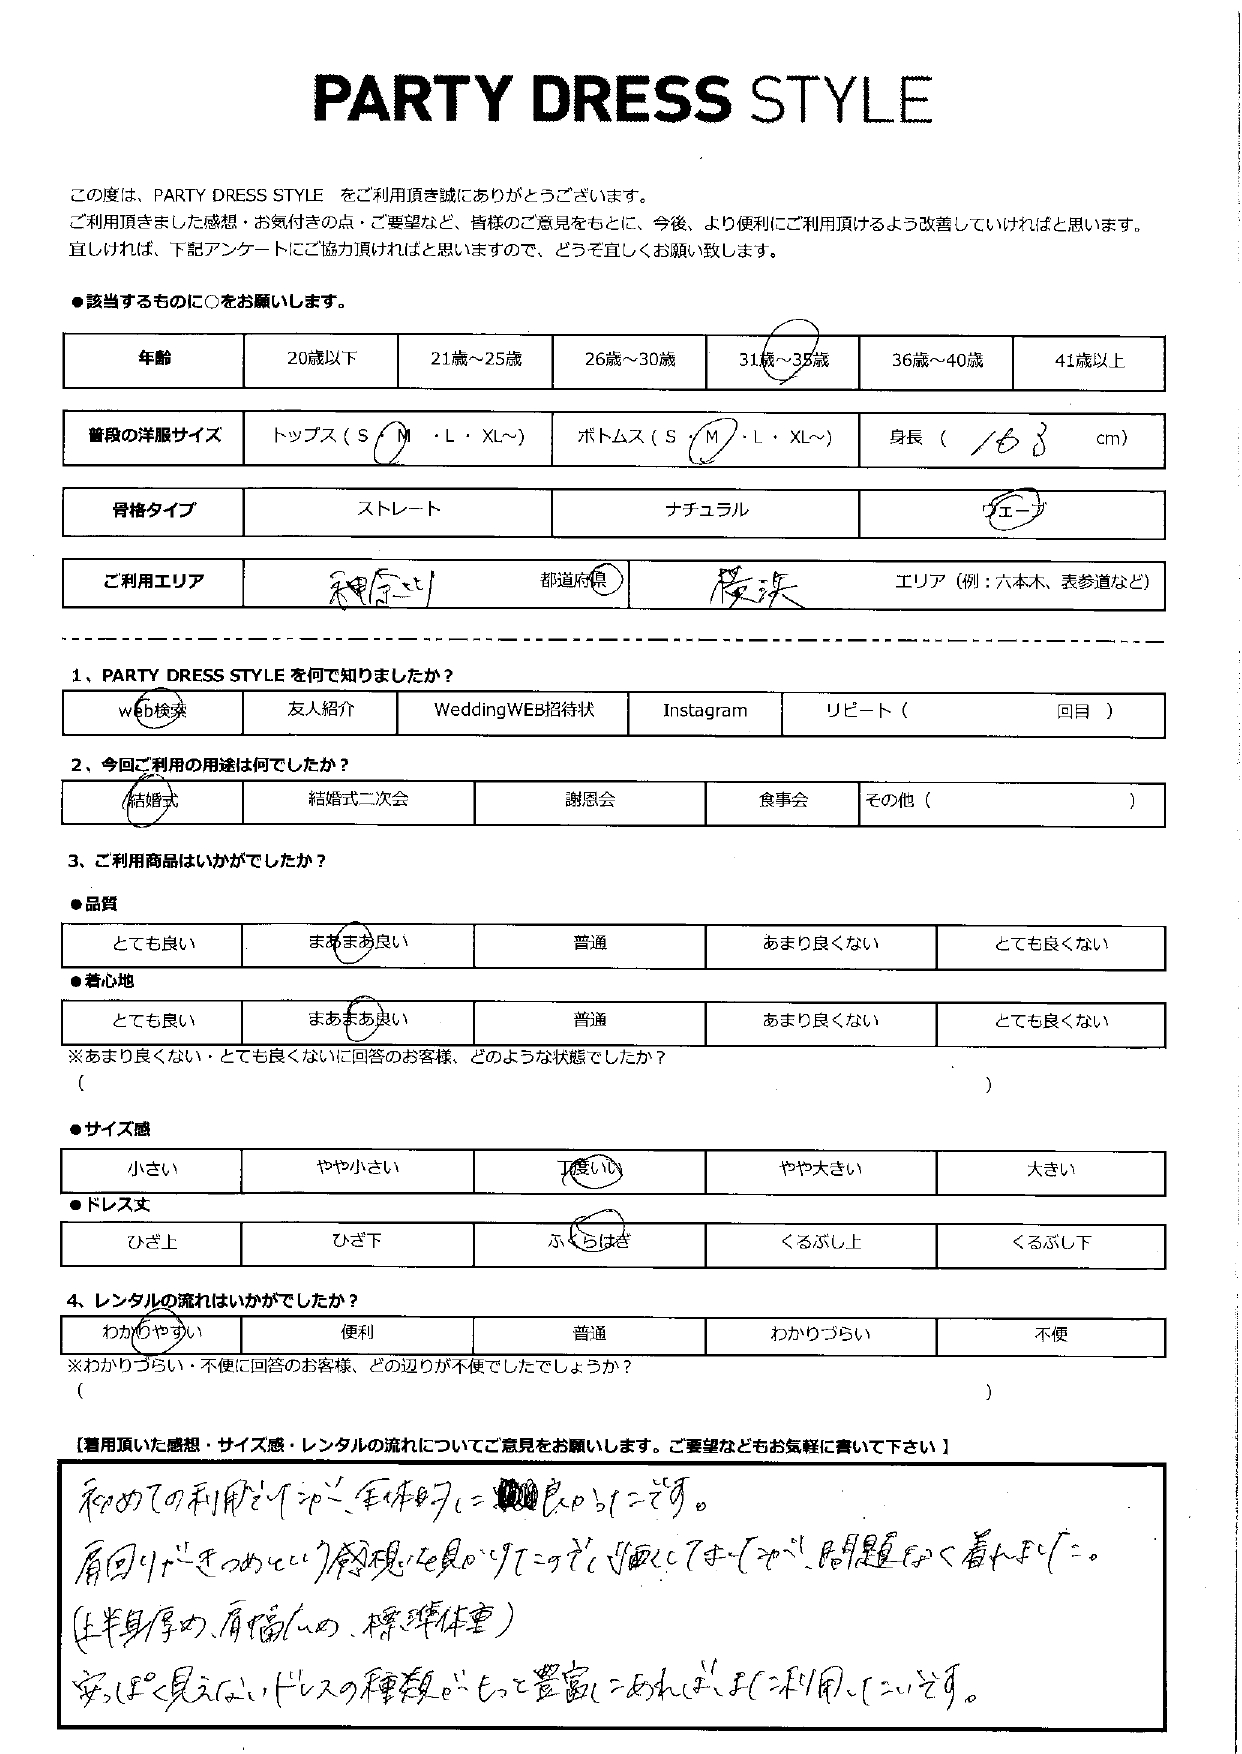 PARTY DRESS STYLE
この度は、PARTY DRESS STYLE をご利用頂き誠にありがとうございます。
ご利用頂きました感想・お気付きの点・ご要望など、皆様のご意見をもとに、今後、より便利にご利用頂けるよう改善していければと思います。
宜しければ、下記アンケートにご協力頂ければと思いますので、どうぞ宜しくお願い致します。
●該当するものに○をお願いします。
年齢 20歳以下 21歳～25歳 26歳～30歳 31歳～35歳 36歳～40歳 41歳以上
普段の洋服サイズ トップス ( S ・ M ・L ・ XL～) ボトムス ( S ・ M ・L ・ XL～) 身長 ( 163 cm)
骨格タイプ ストレート ナチュラル ウェーブ
ご利用エリア 神奈川 都道府県 横浜 エリア（例：六本木、表参道など）
1、PARTY DRESS STYLE を何で知りましたか？
web検索 友人紹介 WeddingWEB招待状 Instagram リピート（ 回目 ）
2、今回ご利用の用途は何でしたか？
結婚式 結婚式二次会 謝恩会 食事会 その他（ ）
3、ご利用商品はいかがでしたか？
●品質
とても良い まあまあ良い 普通 あまり良くない とても良くない
●着心地
とても良い まあまあ良い 普通 あまり良くない とても良くない
※あまり良くない・とても良くないに回答のお客様、どのような状態でしたか？
( )
●サイズ感
小さい やや小さい 丁度いい やや大きい 大きい
●ドレス丈
ひざ上 ひざ下 ふくらはぎ くるぶし上 くるぶし下
4、レンタルの流れはいかがでしたか？
わかりやすい 便利 普通 わかりづらい 不便
※わかりづらい・不便に回答のお客様、どの辺りが不便でしたでしょうか？
( )
【着用頂いた感想・サイズ感・レンタルの流れについてご意見をお願いします。ご要望などもお気軽に書いて下さい 】
初めての利用でしたが、全体的に良かったです。
肩回りがきつめという感想を見かけたので心配してましたが、問題なく着れました。
(上半身厚め、肩幅広め、標準体重)
安っぽく見えないドレスの種類がもっと豊富にあれば、また利用したいです。